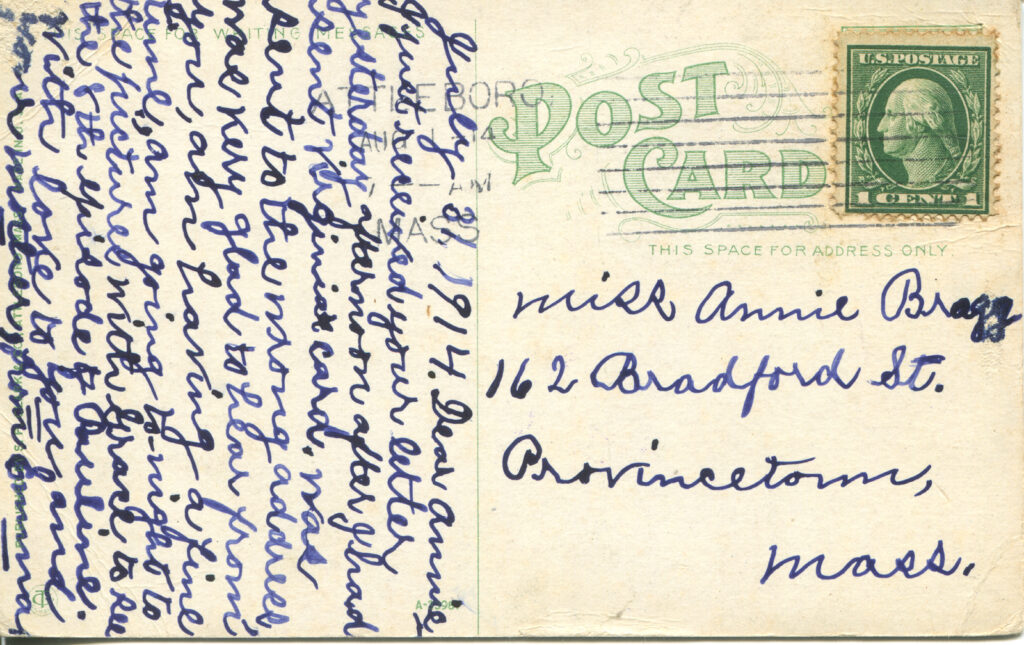 THIS SPACE FOR WRITING MESSAGES
POST
CARD
U.S. POSTAGE
1 CENT 1
ATTLEBORO,
AUG 1
14
7 - AM
MASS
THIS SPACE FOR ADDRESS ONLY
Miss Annie Bragg
162 Bradford St.
Provincetown,
Mass.
July 31, 1914. Dear Annie
Just received your letter
yesterday afternoon after I had
sent Virginia card, was
sent to the wrong address
was very glad to hear from
you, am having a fine
time, am going to-night to
the pictures with Grace to see
the 8th episode of Pauline.
With love to you and
your mother, from Emma